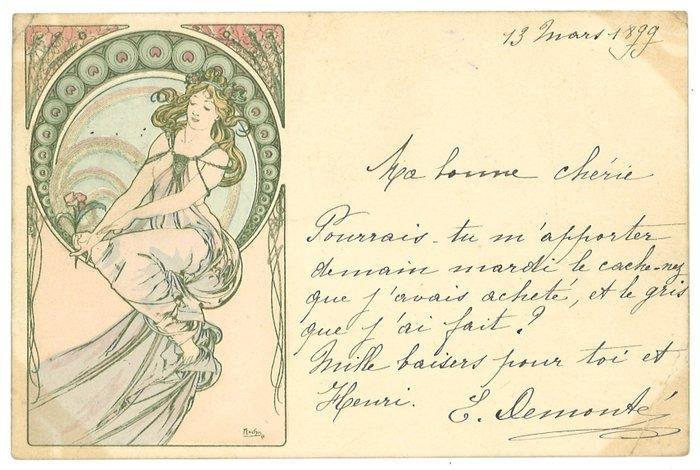 13 Mars 1899
Ma bonne chérie
Pourrais-tu m'apporter
demain mardi le cache-nez
que j'avais acheté, et le gris
que j'ai fait ?
Mille baisers pour toi et
Henri. E. Demonté
Mucha